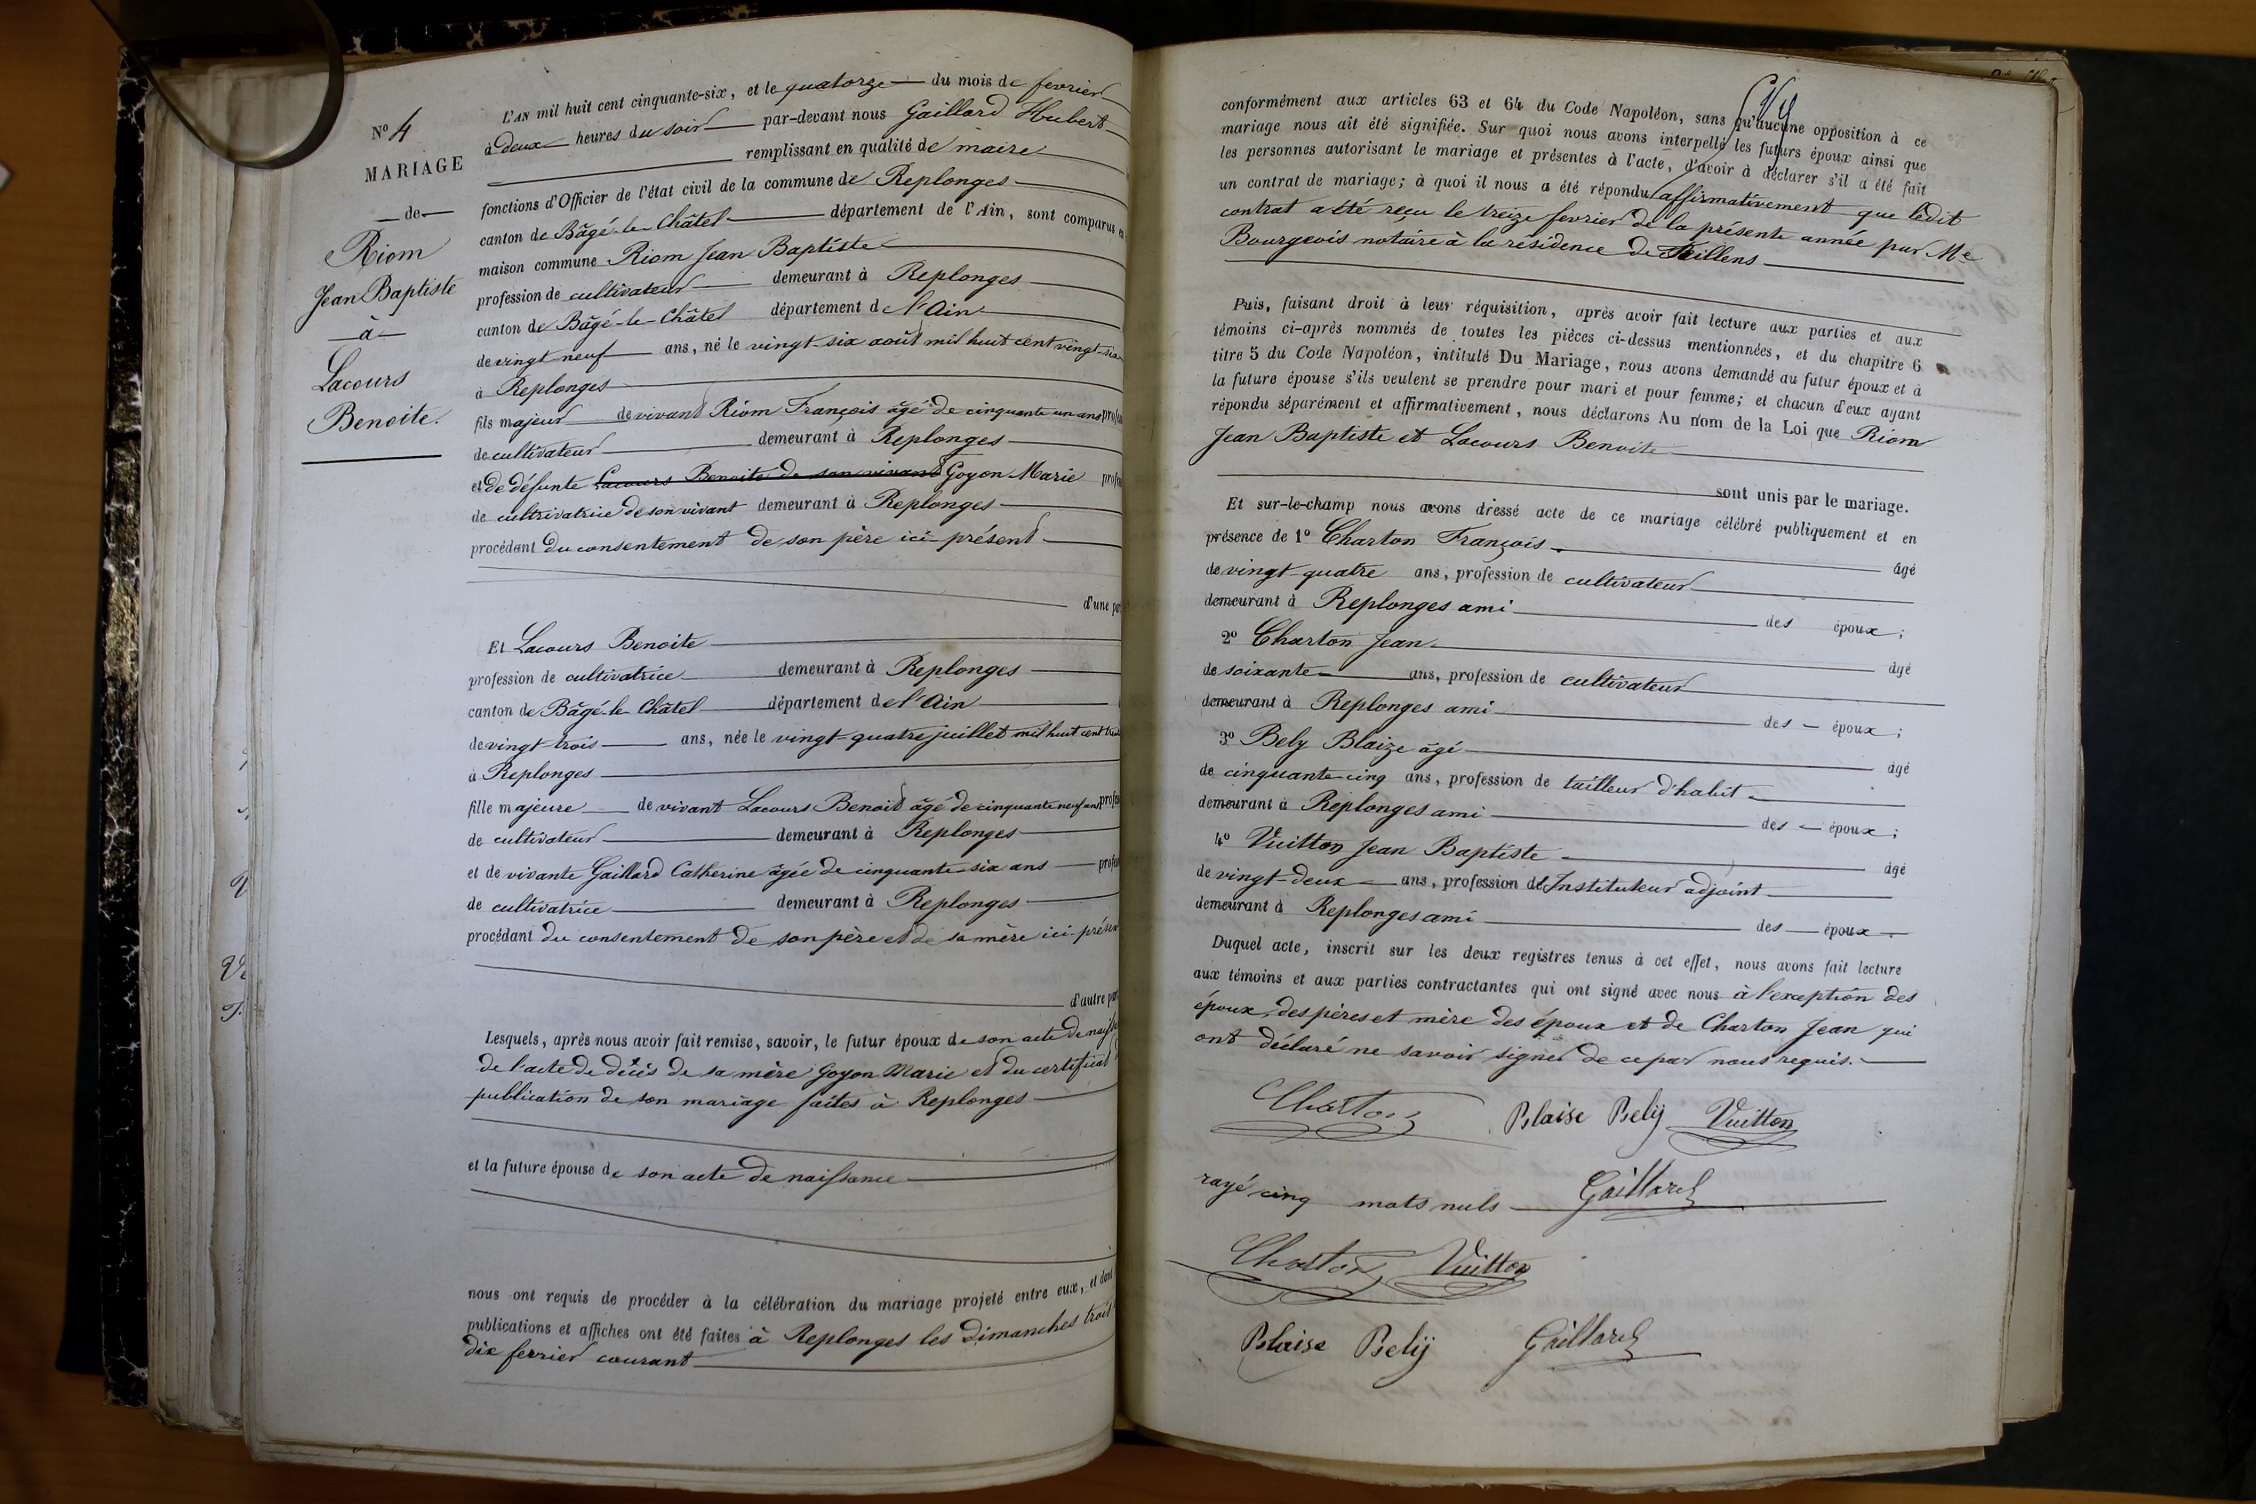 Nº 4
MARIAGE
de
Riom
Jean Baptiste
à
Lacours
Benoite.
L'AN mil huit cent cinquante-six, et le quatorze du mois de fevrier
à deux heures du soir par-devant nous Gaillard Hubert
remplissant en qualité de maire
fonctions d'Officier de l'état civil de la commune de Replonges
canton de Bâgé-le-Châtel département de l'Ain, sont comparus en
maison commune Riom Jean Baptiste
profession de cultivateur demeurant à Replonges
canton de Bâgé-le-Châtel département de l'Ain
de vingt neuf ans, né le vingt-six août mil huit cent vingt-six
à Replonges
fils majeur de vivant Riom François âgé de cinquante un ans profes
de cultivateur demeurant à Replonges
et de défunte Lacours Benoite de son vivant Goyon Marie profes
de cultrivatrice de son vivant demeurant à Replonges
procédant du consentement de son père ici présent
d'une par
Et Lacours Benoite
profession de cultivatrice demeurant à Replonges
canton de Bâgé-le-Châtel département de l'Ain
de vingt trois ans, née le vingt-quatre juillet mil huit cent tren
à Replonges
fille majeure de vivant Lacours Benoit âgé de cinquante neuf ans profes
de cultivateur demeurant à Replonges
et de vivante Gaillard Catherine âgée de cinquante-six ans profes
de cultivatrice demeurant à Replonges
procédant du consentement de son père et de sa mère ici-présen
d'autre part
Lesquels, après nous avoir fait remise, savoir, le futur époux de son acte de naiss
de l'acte de décès de sa mère Goyon Marie et du certificat
publication de son mariage faites à Replonges
et la future épouse de son acte de naissance
nous ont requis de procéder à la célébration du mariage projeté entre eux, et dont
publications et affiches ont été faites à Replonges les Dimanches trois
dix fevrier courant
conformément aux articles 63 et 64 du Code Napoléon, sans qu'aucune opposition à ce
mariage nous ait été signifiée. Sur quoi nous avons interpellé les futurs époux ainsi que
les personnes autorisant le mariage et présentes à l'acte, d'avoir à déclarer s'il a été fait
un contrat de mariage; à quoi il nous a été répondu affirmativement que ledit
contrat a été reçu le treize fevrier de la présente année par Me
Bourgeois notaire à la résidence de Feillens
Puis, faisant droit à leur réquisition, après avoir fait lecture aux parties et aux
témoins ci-après nommés de toutes les pièces ci-dessus mentionnées, et du chapitre 6
titre 5 du Code Napoléon, intitulé Du Mariage, nous avons demandé au futur époux et à
la future épouse s'ils veulent se prendre pour mari et pour femme; et chacun d'eux ayant
répondu séparément et affirmativement, nous déclarons Au nom de la Loi que Riom
Jean Baptiste et Lacours Benoite
sont unis par le mariage.
Et sur-le-champ nous avons dressé acte de ce mariage célébré publiquement et en
présence de 1º Charton François âgé
de vingt-quatre ans, profession de cultivateur
demeurant à Replonges ami des époux;
2º Charton Jean âgé
de soixante ans, profession de cultivateur
demeurant à Replonges ami des époux;
3º Bely Blaize âgé âgé
de cinquante-cinq ans, profession de tailleur d'habit
demeurant à Replonges ami des époux;
4º Vuitton Jean Baptiste âgé
de vingt-deux ans, profession de Instituteur adjoint
demeurant à Replonges ami des époux.
Duquel acte, inscrit sur les deux registres tenus à cet effet, nous avons fait lecture
aux témoins et aux parties contractantes qui ont signé avec nous à l'exception des
époux, des pères et mère des époux et de Charton Jean qui
ont déclaré ne savoir signer de ce par nous requis.
Charton Blaise Belÿ Vuitton
rayé cinq mots nuls Gaillard
Charton Vuitton
Blaise Belÿ Gaillard